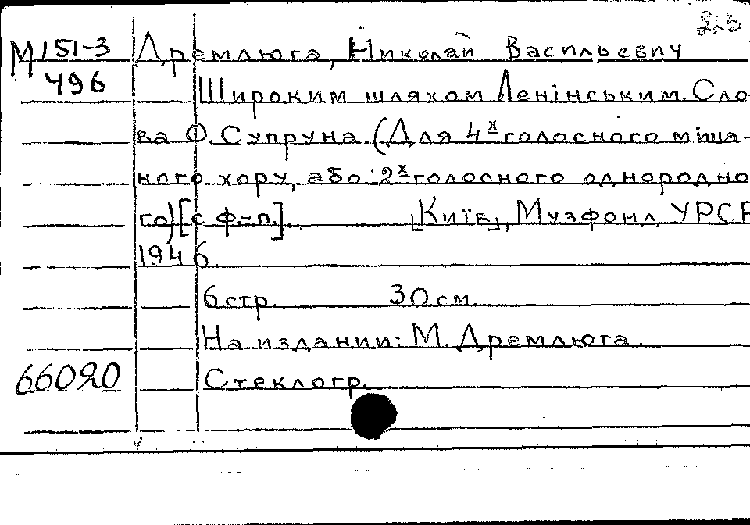 М 151-3 Дремлюга, Николай Васильевич
496 Широким шляхом Ленінським. Сло-
ва О. Супруна (Для 4х голосного міша-
ного хору, або 2х голосного однородно
го) [с ф-п.] [Київ], Музфонд УРСР
1946.
6 стр. 30 см.
На издании: М. Дремлюга.
66020 Стеклогр.